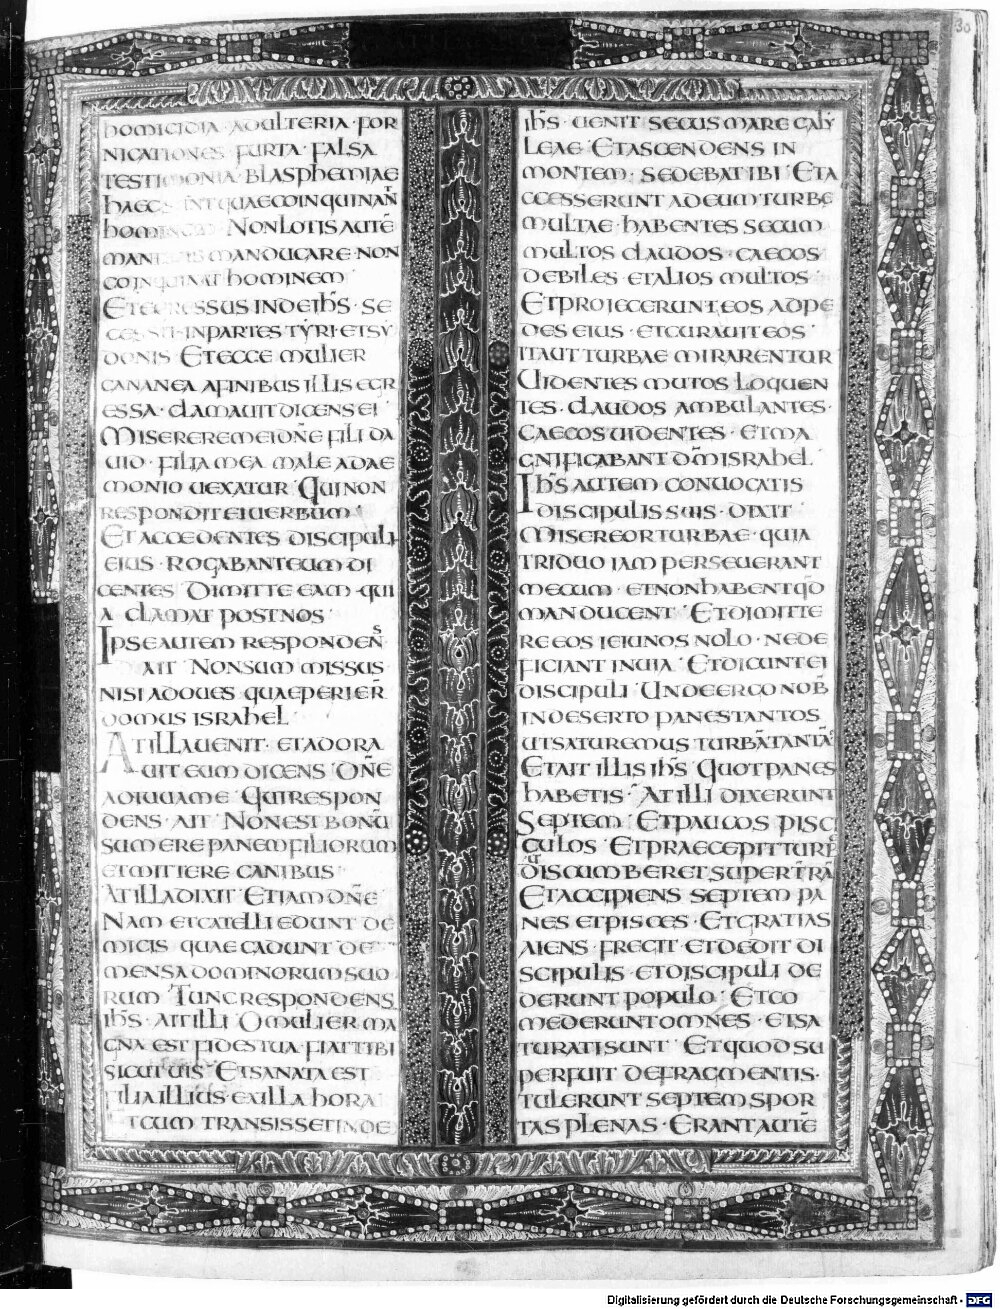 30
homicidia · adulteria · for
nicationes · furta · falsa
testimonia · blasphemiae
haec sunt quae coinquinan̄t
hominem Non lotis autē
manibus manducare · non
coinquinat hominem
Et egressus inde ih̄s · se
cessit · in partes tyri et sy
donis Et ecce mulier
cananea a finibus illis egr
essa · clamavit dicens ei
Miserere mei dn̄e fili da
uid · filia mea male a dae
monio uexatur Qui non
respondit ei uerbum
Et accedentes discipuli
eius · rogabant eum di
centes Dimitte eam · qui
a clamat post nos
Ipse autem respondens
ait Non sum missus
nisi ad oues quae perier̄
domus israhel
At illa uenit · et adora
uit eum dicens Dn̄e
adiuua me Qui respon
dens · ait Non est bonū
sumere panem filiorum
et mittere canibus
At illa dixit Etiam dn̄e
Nam et catelli edunt de
micis quae cadunt de
mensa dominorum suo
rum Tunc respondens
ih̄s · ait illi O mulier ma
gna est fides tua · fiat tibi
sicut uis Et sanata est
filia illius · ex illa hora
Et cum transisset inde
ih̄s · uenit secus mare gali
leae Et ascendens in
montem · sedebat ibi Et a
ccesserunt ad eum turbe
multae · habentes secum
multos claudos · caecos
debiles et alios multos
Et proiecerunt eos ad pe
des eius · et curauit eos
ita ut turbae mirarentur
Uidentes mutos loquen
tes · claudos ambulantes ·
caecos uidentes · et ma
gnificabant dm̄ israhel
Ih̄s autem conuocatis
discipulis suis · dixit
Misereor turbae · quia
triduo iam perseuerant
mecum · et non habent qd̄
manducent Et dimitte
re eos ieiunos nolo · ne de
ficiant in uia Et dicunt ei
discipuli Unde ergo nob̄
in deserto panes tantos
ut saturemus turbā tantā
Et ait illis ih̄s Quot panes
habetis · At illi dixerunt
Septem Et paucos pisci
culos Et praecepit turbe
ut discumberet super trā
Et accipiens septem pa
nes et pisces · Et gratias
aiens · fregit et dedit di
scipulis · et discipuli de
derunt populo Et co
mederunt omnes · et sa
turati sunt Et quod su
perfuit de fragmentis ·
tulerunt septem spor
tas plenas · Erant autē
Digitalisierung gefördert durch die Deutsche Forschungsgemeinschaft - DFG